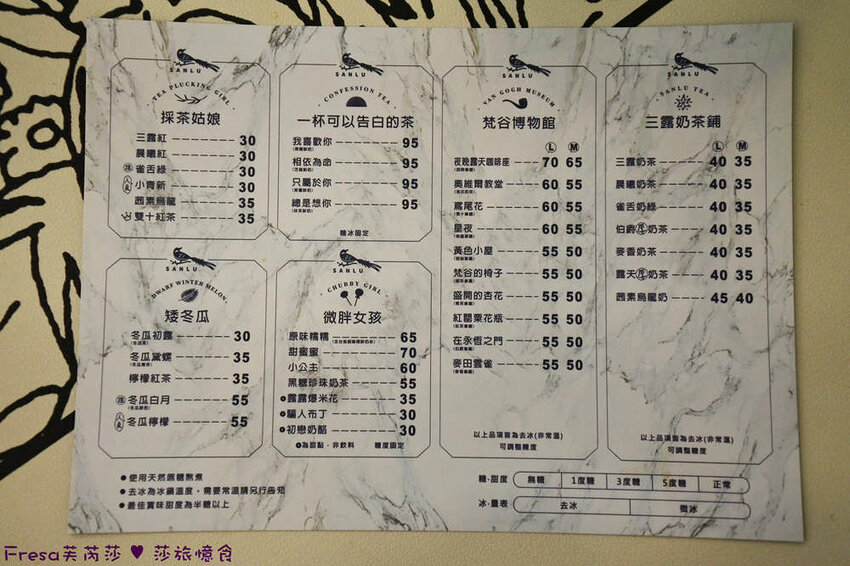 SANLU
TEA PLUCKING GIRL
採茶姑娘
三露紅 30
晨曦紅 30
雀舌綠 30
小青新 30
茜素烏龍 35
雙十紅茶 35
SANLU
CONFESSION TEA
一杯可以告白的茶
我喜歡你 95
相依為命 95
只屬於你 95
總是想你 95
糖冰固定
SANLU
VAN GOGH MUSEUM
梵谷博物館
L M
夜晚露天咖啡座 70 65
奧維爾教堂 60 55
鳶尾花 60 55
星夜 60 55
黃色小屋 55 50
梵谷的椅子 55 50
盛開的杏花 55 50
紅罌粟花瓶 55 50
在永恆之門 55 50
麥田雲雀 55 50
以上品項皆為去冰(非常溫)
可調整糖度
SANLU
SANLU TEA
三露奶茶鋪
L M
三露奶茶 40 35
晨曦奶茶 40 35
雀舌奶綠 40 35
伯爵厚奶茶 40 35
麥香奶茶 40 35
露天厚奶茶 40 35
茜素烏龍奶 45 40
以上品項皆為去冰(非常溫)
可調整糖度
SANLU
DWARF WINTER MELON
矮冬瓜
冬瓜初露 30
冬瓜黛螺 35
檸檬紅茶 35
冬瓜白月 55
冬瓜檸檬 55
SANLU
CHUBBY GIRL
微胖女孩
原味糯糯 65
甜蜜蜜 70
小公主 60
黑糖珍珠奶茶 55
露露爆米花 35
騙人布丁 30
初戀奶酪 30
為甜點，非飲料 糖度固定
使用天然黑糖熬煮
去冰為冰鎮溫度，需要常溫請另行告知
最佳賞味甜度為半糖以上
糖·甜度 無糖 1度糖 3度糖 5度糖 正常
冰·量表 去冰 微冰
Fresa芙芮莎 ♥ 莎旅憶食